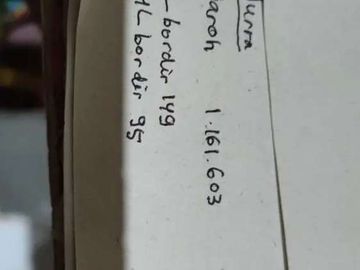 urra
aroh 1.161.603
- bordir 149
L bordir 95